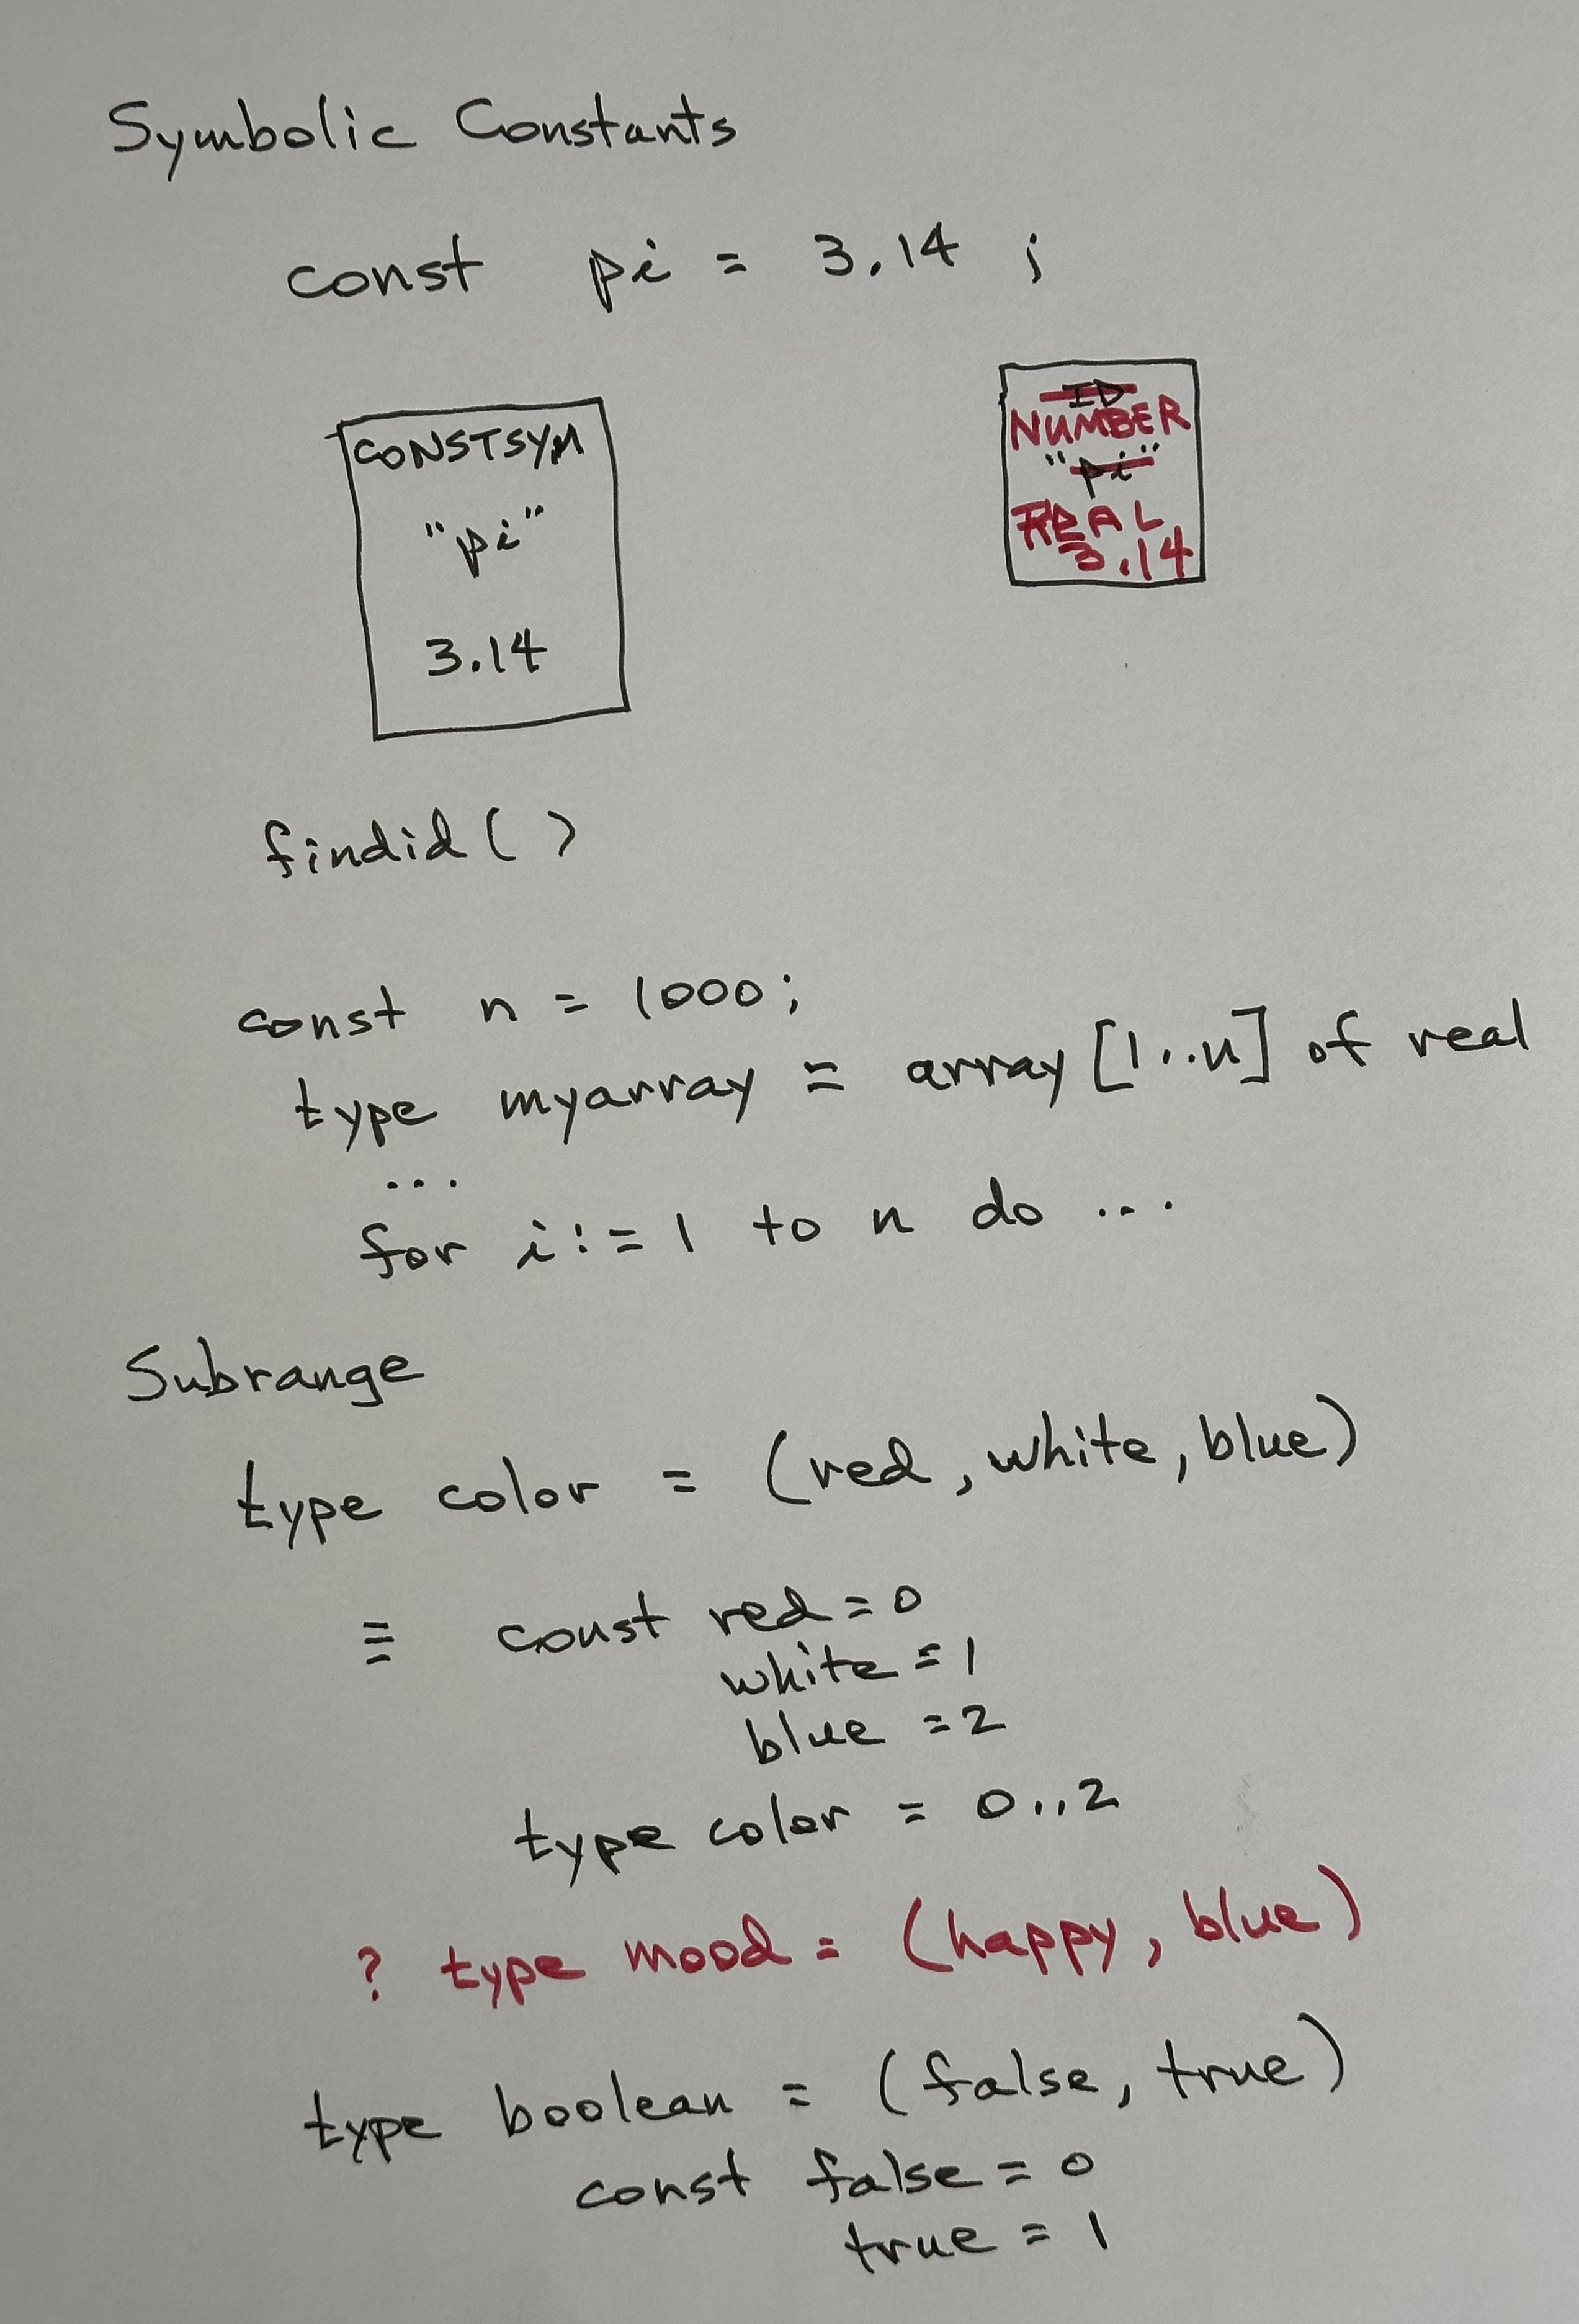 Symbolic Constants
const pi = 3.14 ;
CONSTSYM
"pi"
3.14
ID
NUMBER
"pi"
REAL
3.14
findid( )
const n = 1000;
type myarray = array [1..n] of real
...
for i := 1 to n do ...
Subrange
type color = (red, white, blue)
≡ const red = 0
white = 1
blue = 2
type color = 0..2
? type mood = (happy, blue)
type boolean = (false, true)
const false = 0
true = 1